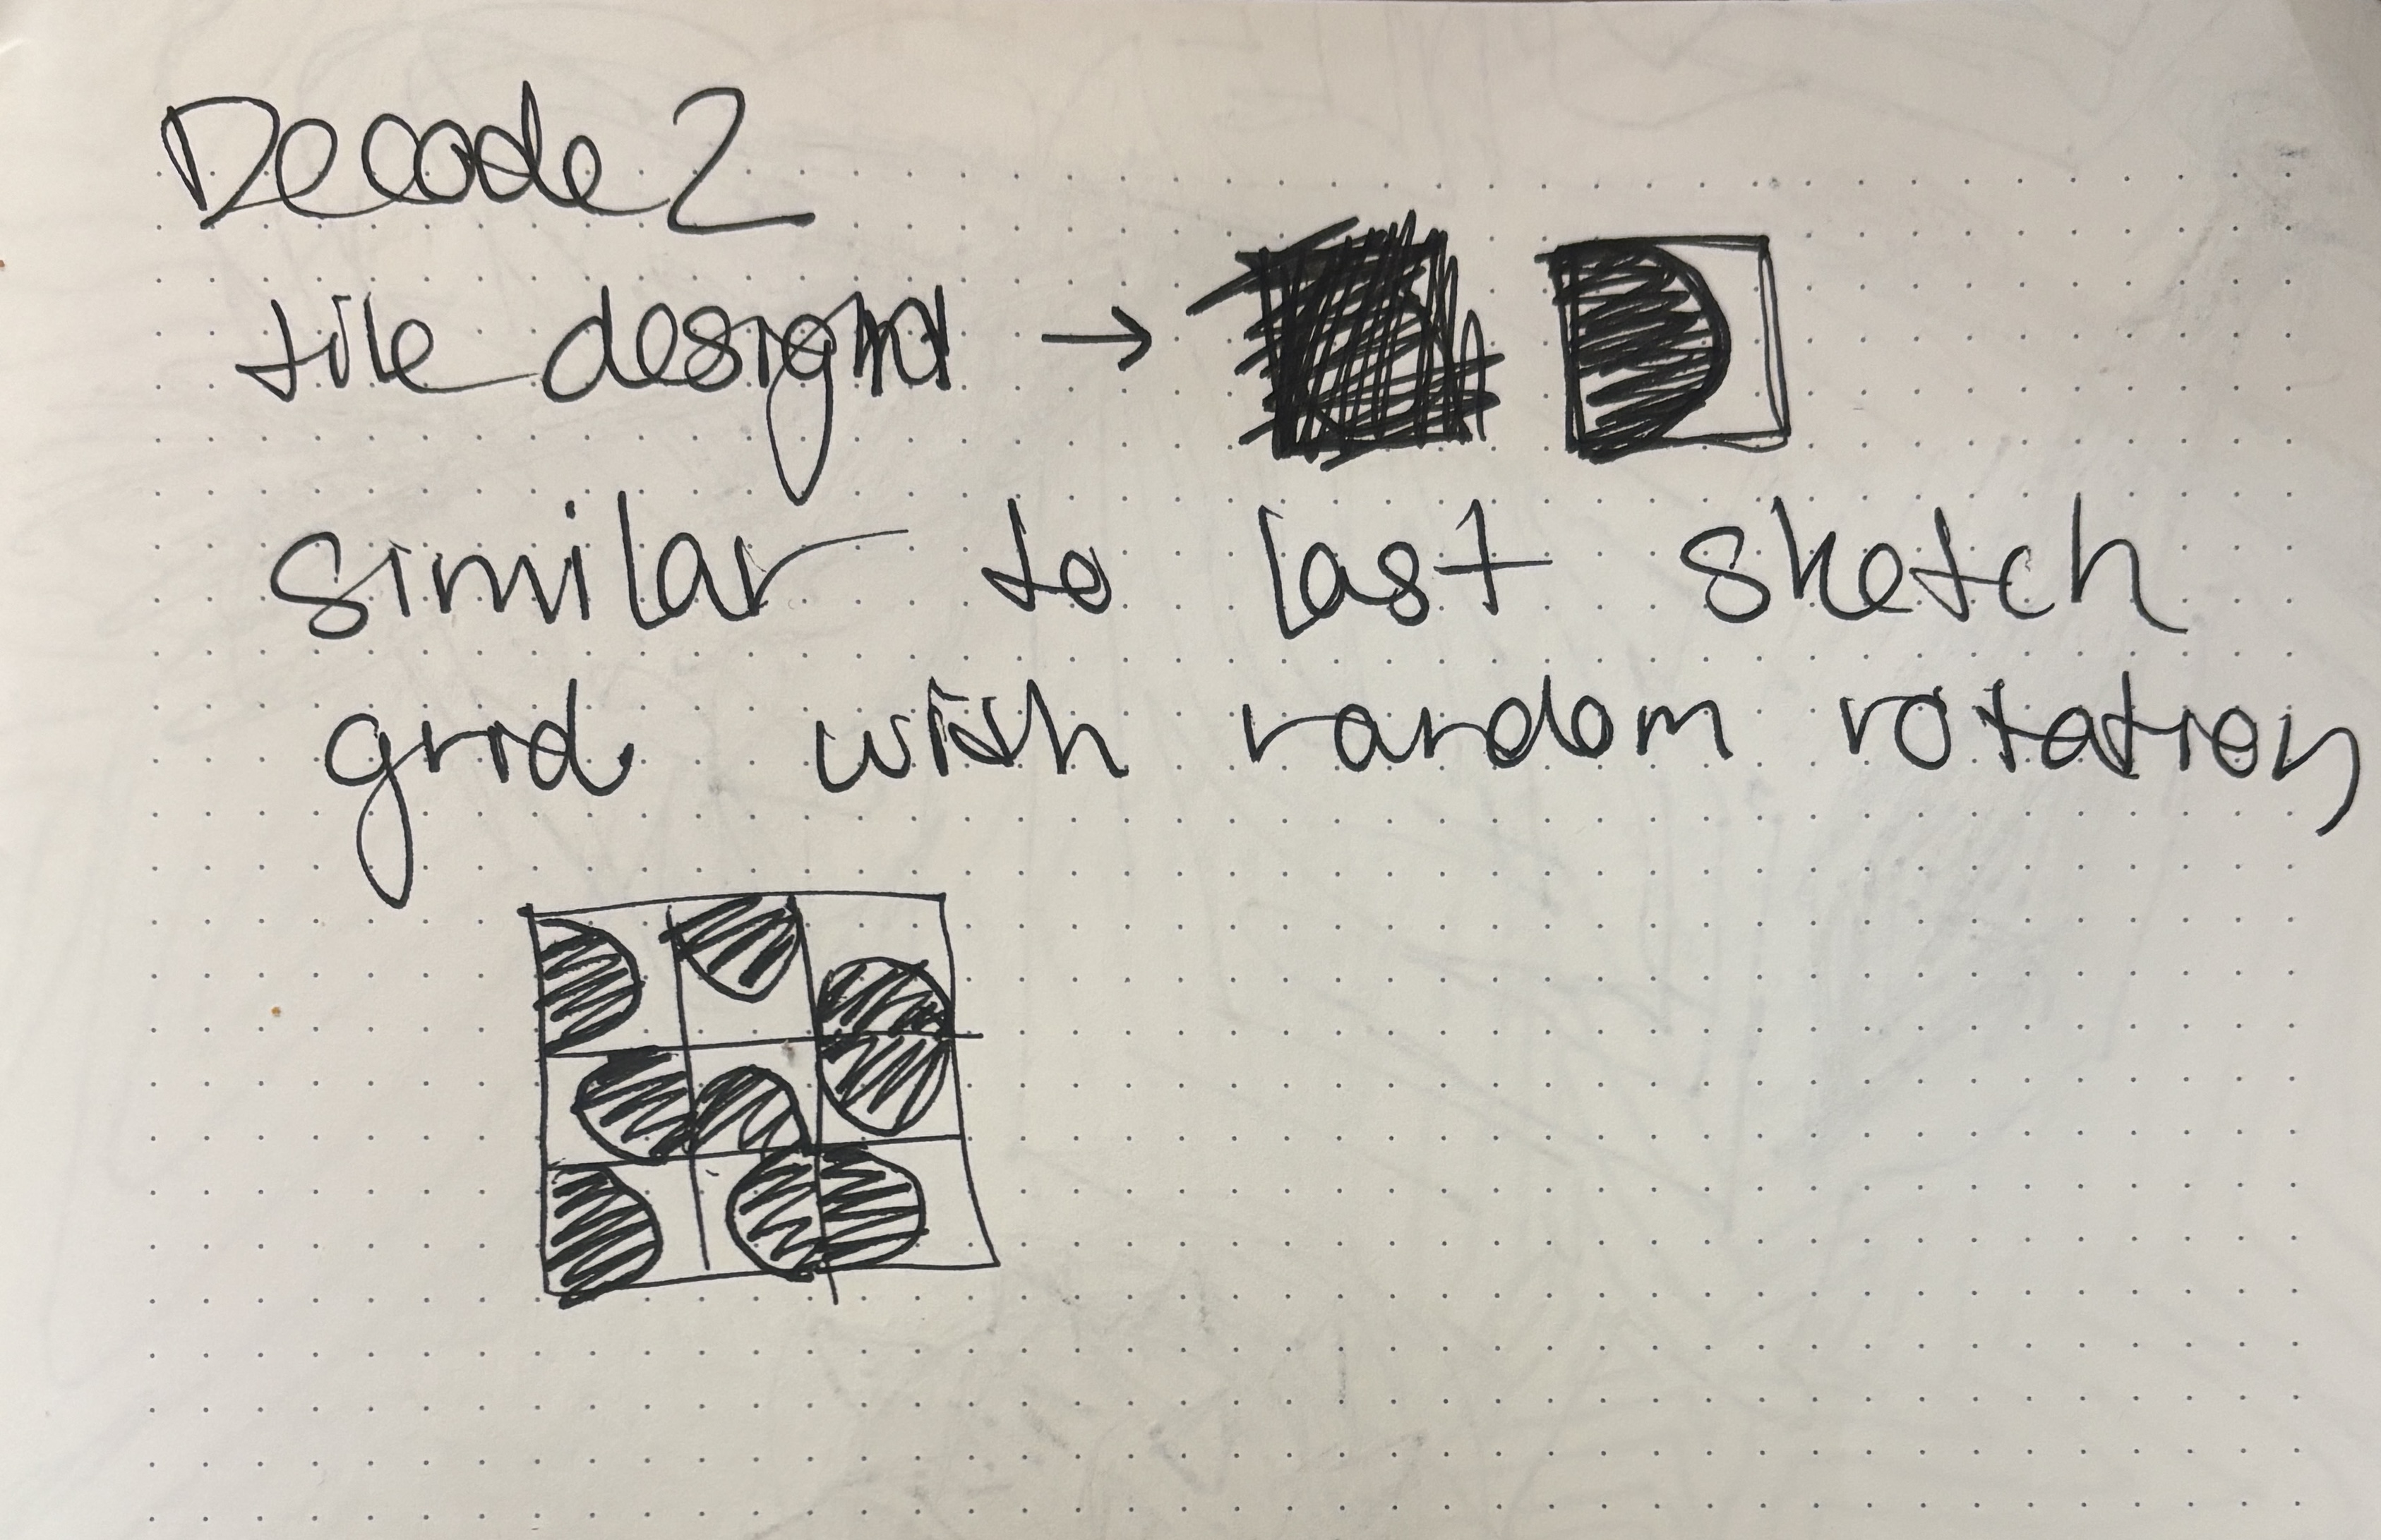 Decode 2
tile design →
similar to last sketch
grid with random rotation